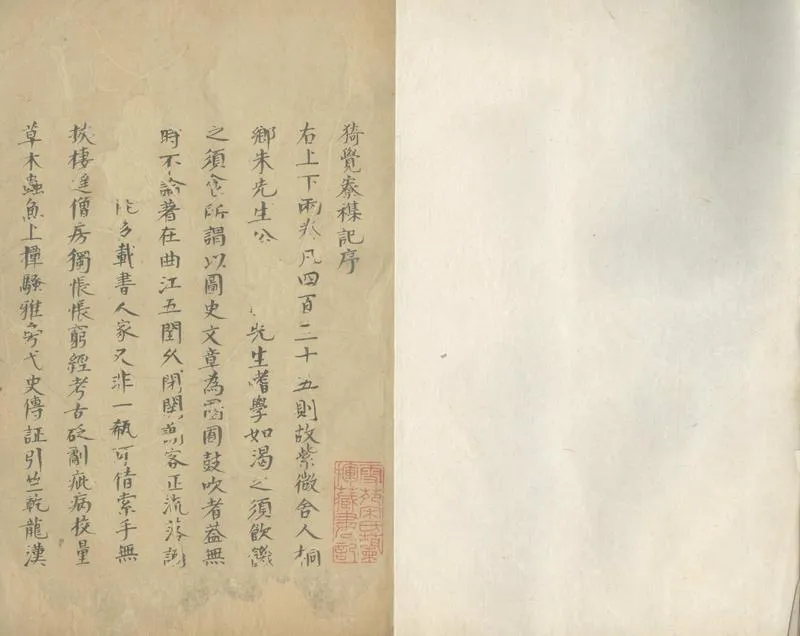 猗覺寮襍記序
右上下兩 凡四百二十五則故紫微舍人桐
鄉朱先生公
先生嗜學如渴之須飲饑
之須食所謂以圖史文章為園囿鼓吹者葢無
時不 著在曲江五閏 閉閤 客正流落
多載書人家又非一瓻可借索手無
挾棲 僧房獨悵悵窮經考古砭劀疵病校量
草木蟲魚上撢騷雅旁弋史傳証引竺乾龍漢